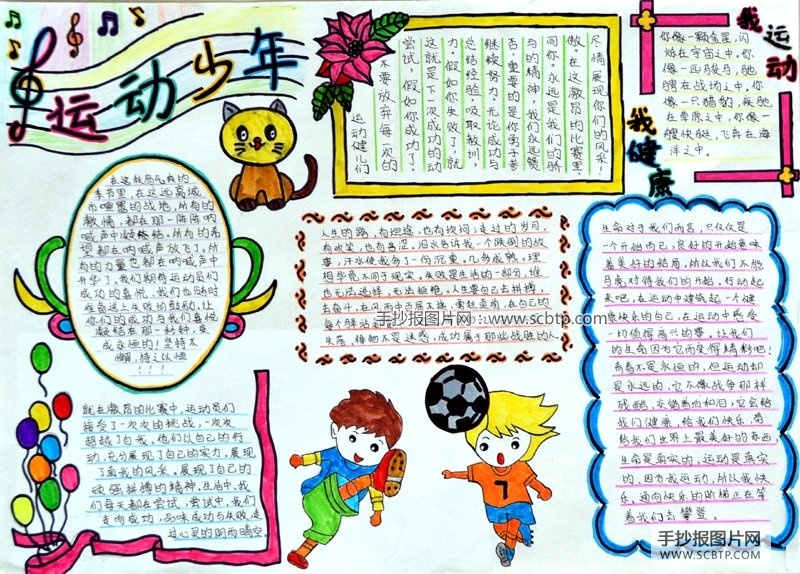 运动少年
运动健儿们
不要放弃每一次的
尝试，假如你成功了，
这就是下一次成功的动
力。假如你失败了，就
总结经验，吸取教训，
继续努力。无论成功与
否，重要的是你勇于参
与的精神，我们永远赞
同你。永远是我们的骄
傲。在这激昂的比赛里，
尽情展现你们的风采！
我运动
我健康
你像一颗金星，闪
烁在宇宙之中。你
像一匹骏马，驰
骋在战场之中，你
像一只猎豹，疾驰
在草原之中，你像一
艘快艇，飞奔在海
洋之中。
在这秋高气爽的
季节里，在这远离城
市喧嚣的战地，所有的
激情，都在那一阵阵呐
喊声中凝结，所有的希
望都在呐喊声放飞了。所
有的力量也都在呐喊声中
升华了，我们期待运动员们
成功的喜悦，我们也随时
准备送上失败的鼓励，让
你们的成功与我们喜悦
凝结在那一秒钟，变
成永恒的！坚持不
懈，持之以恒
！！！
人生的路，有坦途，也有坎坷；走过的岁月，
有欢笑，也有苦涩。泪水告诉我一个跌倒的故
事，汗水使我多了一份沉重，几多成熟。理
想毕竟不同于现实，失败是生活的一部分，谁
也无法选择，无法抗拒。人生要自己去拼搏，
去奋斗，在风雨中百屈不挠，勇往直前，在自己的
每个驿站
失落，徘徊不是迷惑，成功属于那些战胜的人
生命对于我们而言，只仅仅是
一个开始而已，良好的开始意味
着美好的结局，所以我们不能
马虎，对待我们的开始，行动起
来吧，在运动中建筑起一个健
康快乐的自己，在运动中感受
一切值得高兴的事，让我们
的生命因为它而变得精彩吧！
青春不是永恒的，但运动却
是永远的，它不像战争那样
残酷，夹错着血和泪，它会给
我们健康，给我们快乐，带
给我们世界上最美好的东西，
生命是真实的，运动是真实
的，因为我运动，所以我快
乐，通向快乐的阶梯正在等
着我们去攀登。
就在激昂的比赛中，运动员们
接受了一次次的挑战，一次次
超越了自我，他们以自己的行
动，充分展现了自己的实力，展现
了团我的风采，展现了自己的
顽强拼搏的精神，生活中，我
们每天都在尝试，尝试中，我们
走向成功，品味成功与失败，走
过心灵的阴雨晴空
7
手抄报图片网:www.scbtp.com
手抄报图片网
WWW.SCBTP.COM